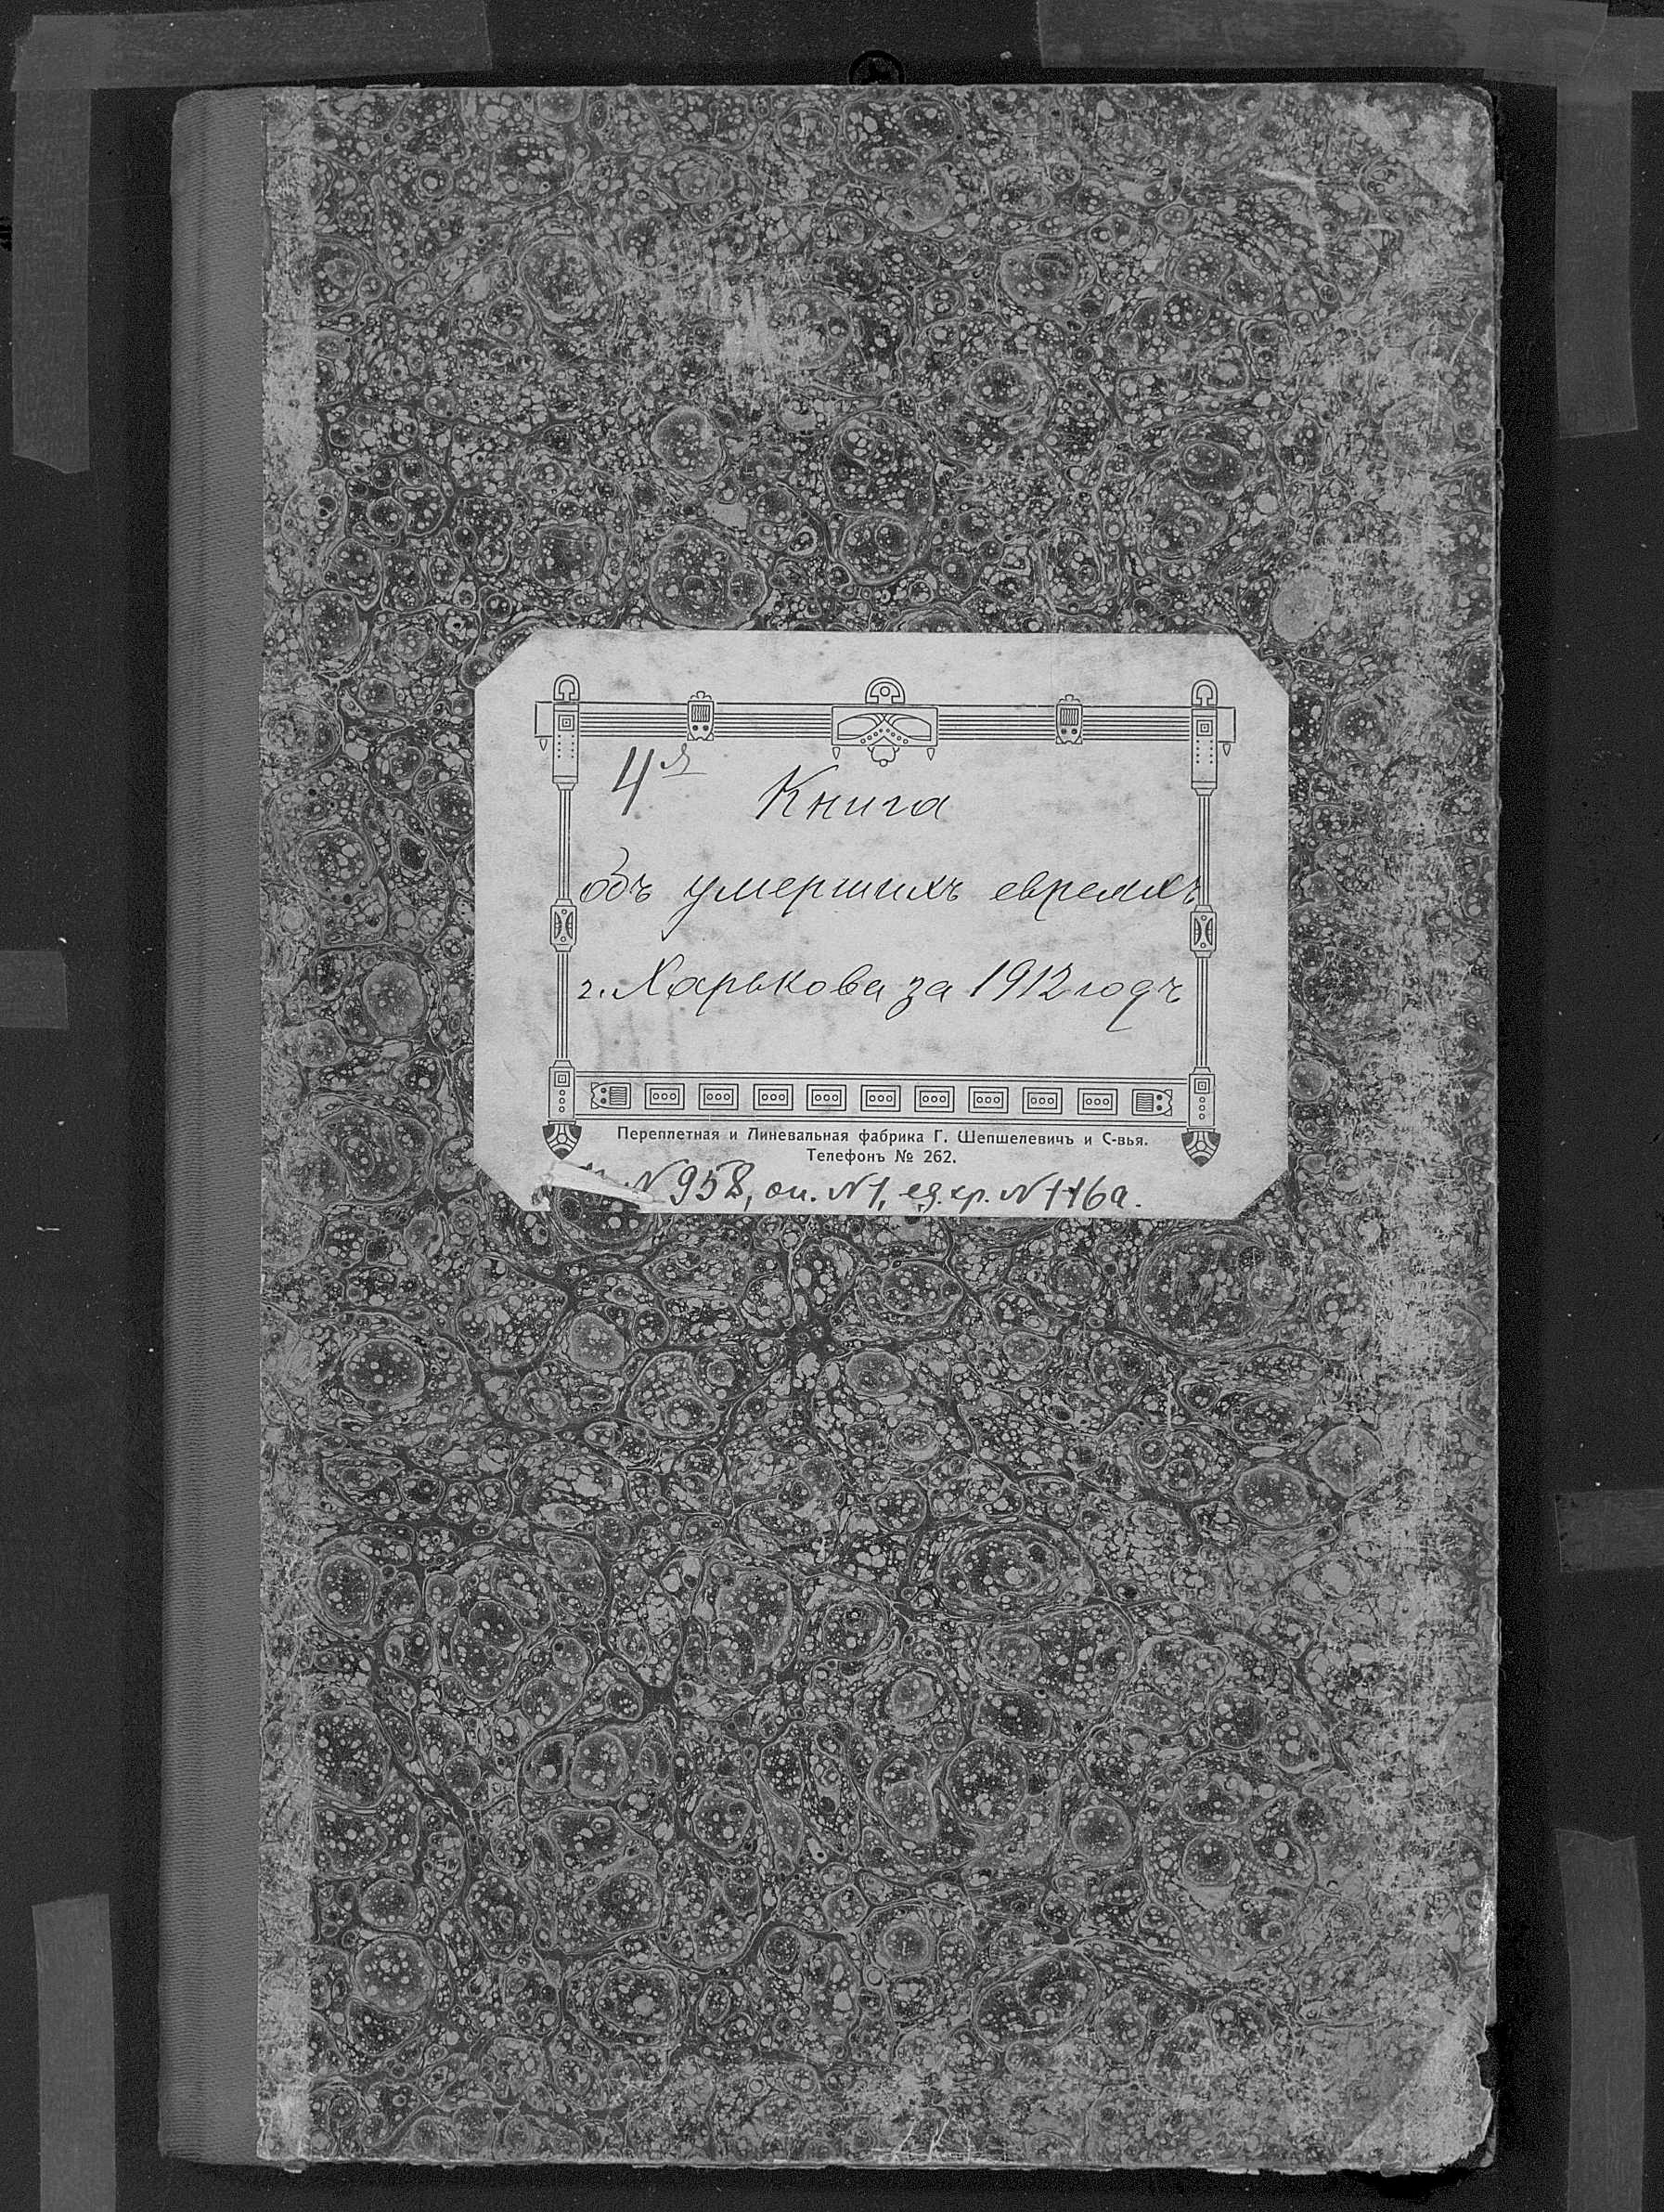 4я
Книга
объ умершихъ евреяхъ
г. Харькова за 1912 годъ
Переплетная и Линевальная фабрика Г. Шепшелевичъ и С-вья.
Телефонъ № 262.
№ 958, оп. №1, ед. хр. № 116а.